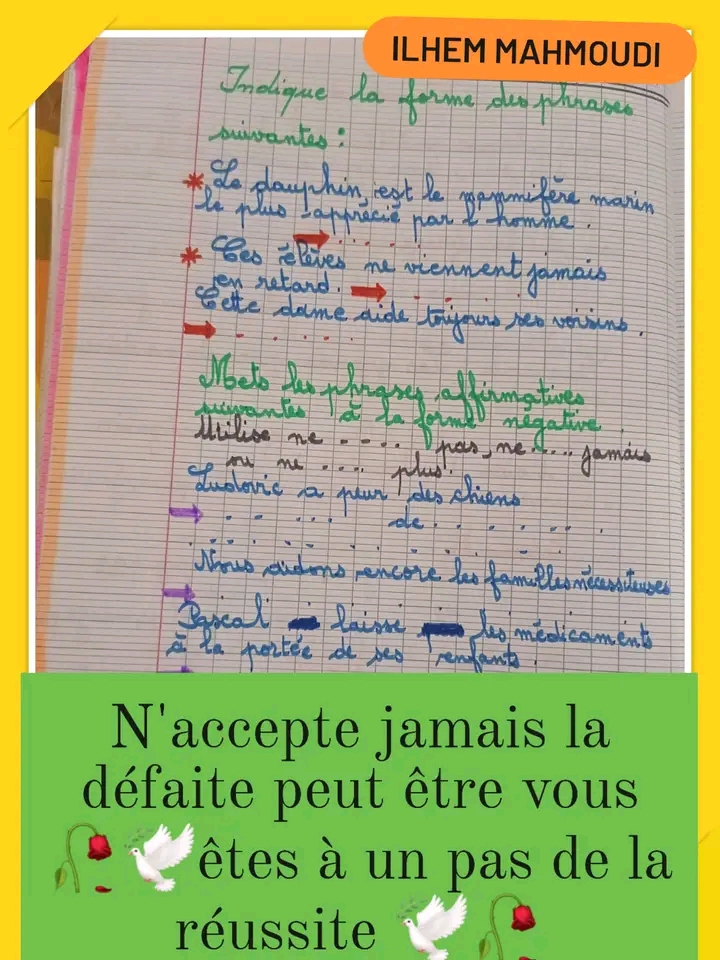 ILHEM MAHMOUDI
Indique la forme des phrases
suivantes :
* Le dauphin est le mammifère marin
le plus apprécié par l'homme .
. . . . . .
* Ces élèves ne viennent jamais
en retard. . . .
Cette dame aide toujours ses voisins .
. . . . . .
Mets les phrases affirmatives
suivantes à la forme négative .
Utilise ne .... pas, ne .... jamais
ou ne .... plus.
Ludovic a peur des chiens
. . . . . de . . . . . . .
Nous aidons encore les familles nécessiteuses
Pascal laisse les médicaments
à la portée de ses enfants .
N'accepte jamais la
défaite peut être vous
🥀🕊️êtes à un pas de la
réussite 🕊️🥀